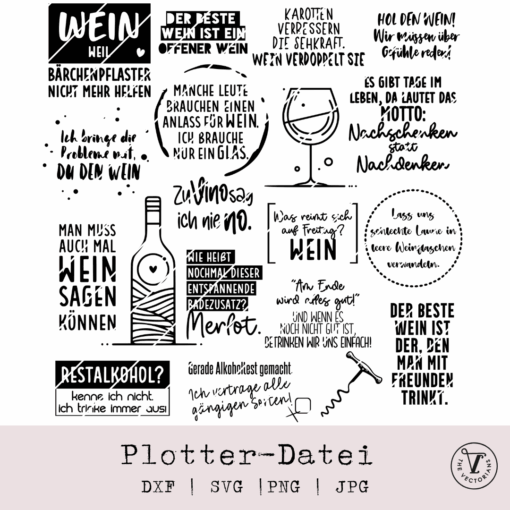 WEIN
WEIL
BÄRCHENPFLASTER
NICHT MEHR HELFEN
DER BESTE
WEIN IST EIN
OFFENER WEIN
KAROTTEN
VERBESSERN
DIE SEHKRAFT.
WEIN VERDOPPELT SIE
HOL DEN WEIN!
Wir müssen über
Gefühle reden!
Ich bringe die
Probleme mit,
DU DEN WEIN
MANCHE LEUTE
BRAUCHEN EINEN
ANLASS FÜR WEIN.
ICH BRAUCHE
NUR EIN GLAS.
ES GIBT TAGE IM
LEBEN, DA LAUTET DAS
MOTTO:
Nachschenken
statt
Nachdenken
Zu Vino say
ich nie no.
Was reimt sich
auf Freitag?
WEIN
Lass uns
schlechte Laune in
leere Weinflaschen
verwandeln.
MAN MUSS
AUCH MAL
WEIN
SAGEN
KÖNNEN
WIE HEIßT
NOCHMAL DIESER
ENTSPANNENDE
BADEZUSATZ?
Merlot.
"Am Ende
wird alles gut!"
UND WENN ES
NOCH NICHT GUT IST,
BETRINKEN WIR UNS EINFACH!
DER BESTE
WEIN IST
DER, DEN
MAN MIT
FREUNDEN
TRINKT.
RESTALKOHOL?
kenne ich nicht.
ich trinke immer aus!
Gerade Alkoholtest gemacht.
Ich vertrage alle
gängigen Sorten!
Plotter-Datei
DXF | SVG |PNG | JPG
THE VECTORIANS